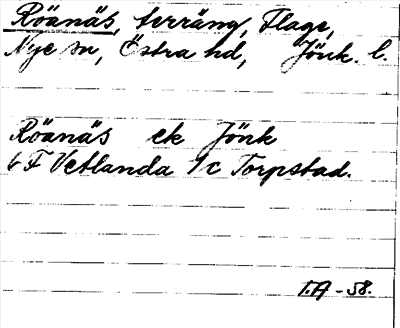 Röänäs, terräng, Flage,
Nye sn, Östra hd, Jönk. l.
Röänäs ek Jönk
6 F Vetlanda 1c Torpstad.
T.A -58.